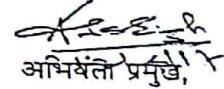 अभियंता प्रमुख,